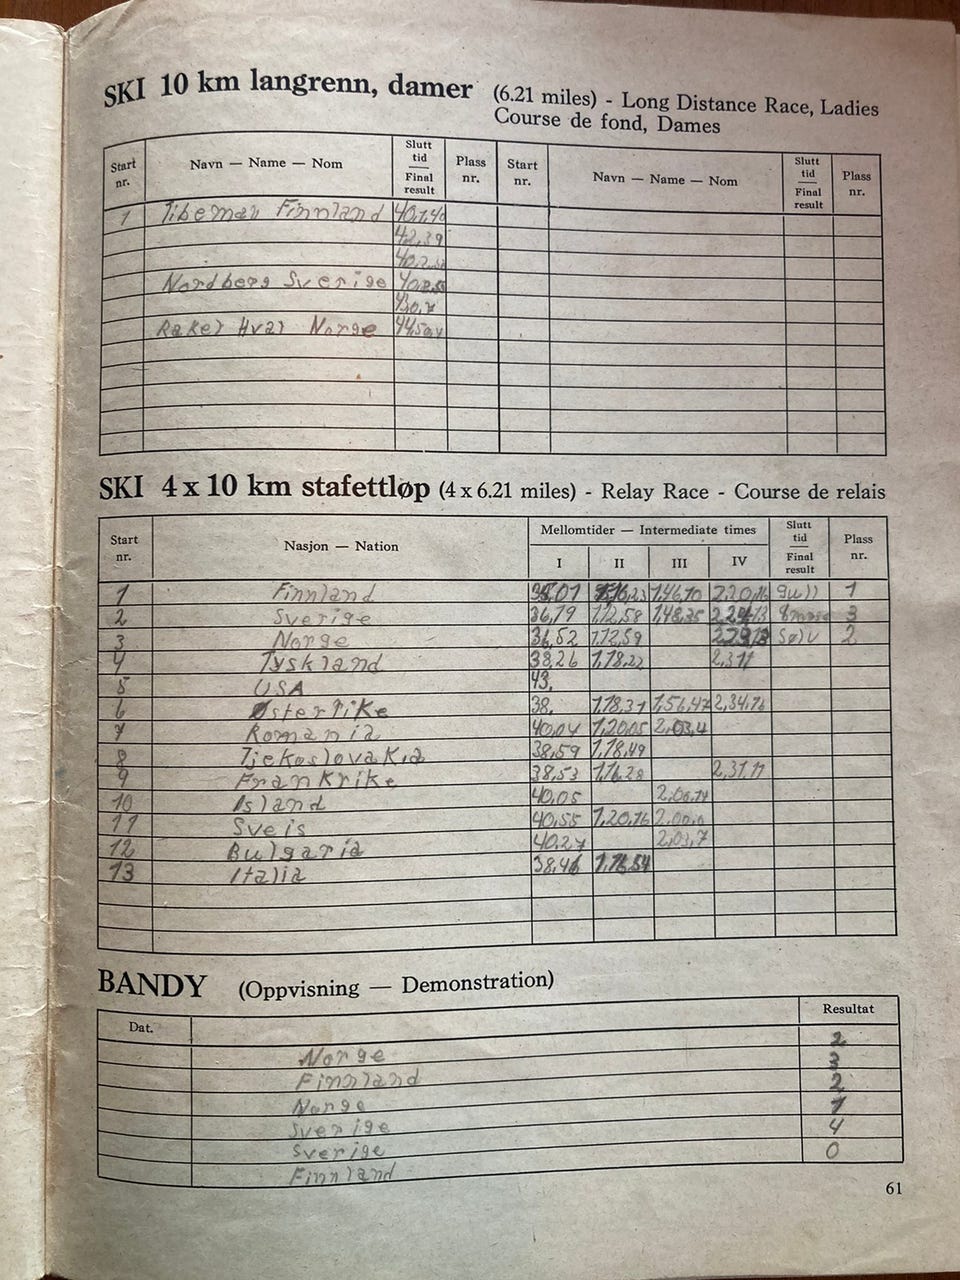 SKI 10 km langrenn, damer (6.21 miles) - Long Distance Race, Ladies
Course de fond, Dames
Start nr. Navn — Name — Nom Slutt tid Final result Plass nr. Start nr. Navn — Name — Nom Slutt tid Final result Plass nr.
1 Finnland
42,39
Nordberg Sverige
Norge
SKI 4 x 10 km stafettløp (4 x 6.21 miles) - Relay Race - Course de relais
Start nr. Nasjon — Nation Mellomtider — Intermediate times Slutt tid Final result Plass nr.
I II III IV
1 Finnland 1,46,10 2,20,16 gull 1
2 Sverige 36,19 1,12,58 1,48,35 3
3 Norge 36,52 1,12,59 Sølv 2
4 Tyskland 38,26 1,18,22
5 USA 43,
6 Østerrike 38, 1,18,31 1,56,47 2,34,36
7 Romania 40,04 1,20,05 2,03,4
8 Tjekoslovakia 38,59 1,18,49
9 Frankrike 38,53 1,16,28 2,31,11
10 Island 40,05
11 Sveis 40,55 1,20,16
12 Bulgaria 2,03,7
13 Italia 38,46
BANDY (Oppvisning — Demonstration)
Dat. Resultat
Norge 2
Finnland 3
Norge 2
Sverige 1
Sverige 4
Finnland 0
61